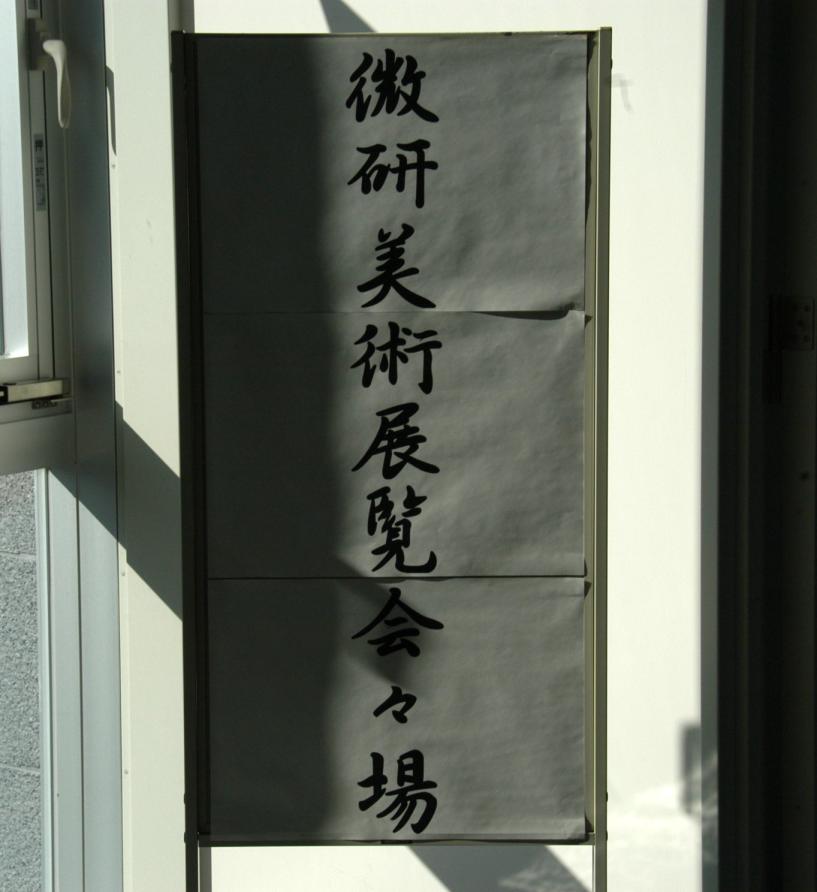 微研美術展覧会々場